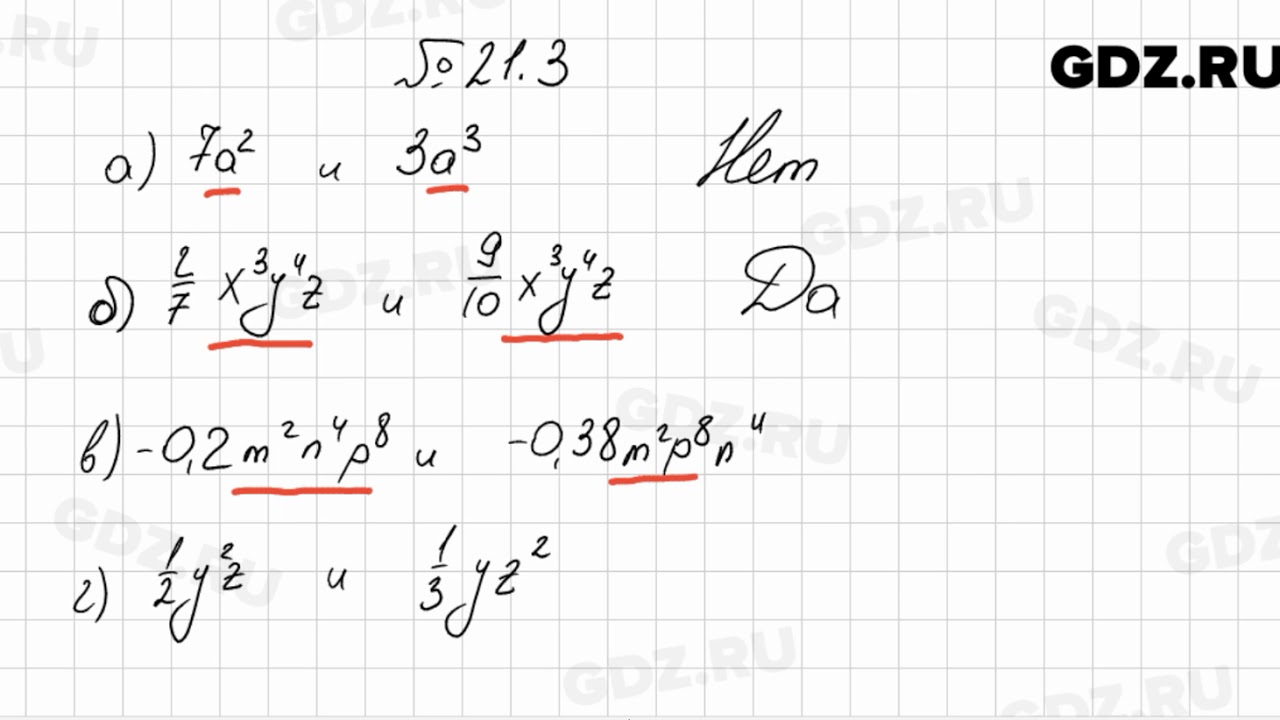 № 21.3
GDZ.RU
а) 7a² и 3a³ Нет
б) 2/7 x³y⁴z и 9/10 x³y⁴z Да
в) -0,2m²n⁴p⁸ и -0,38m²p⁸n⁴
г) 1/2 y²z и 1/3 yz²